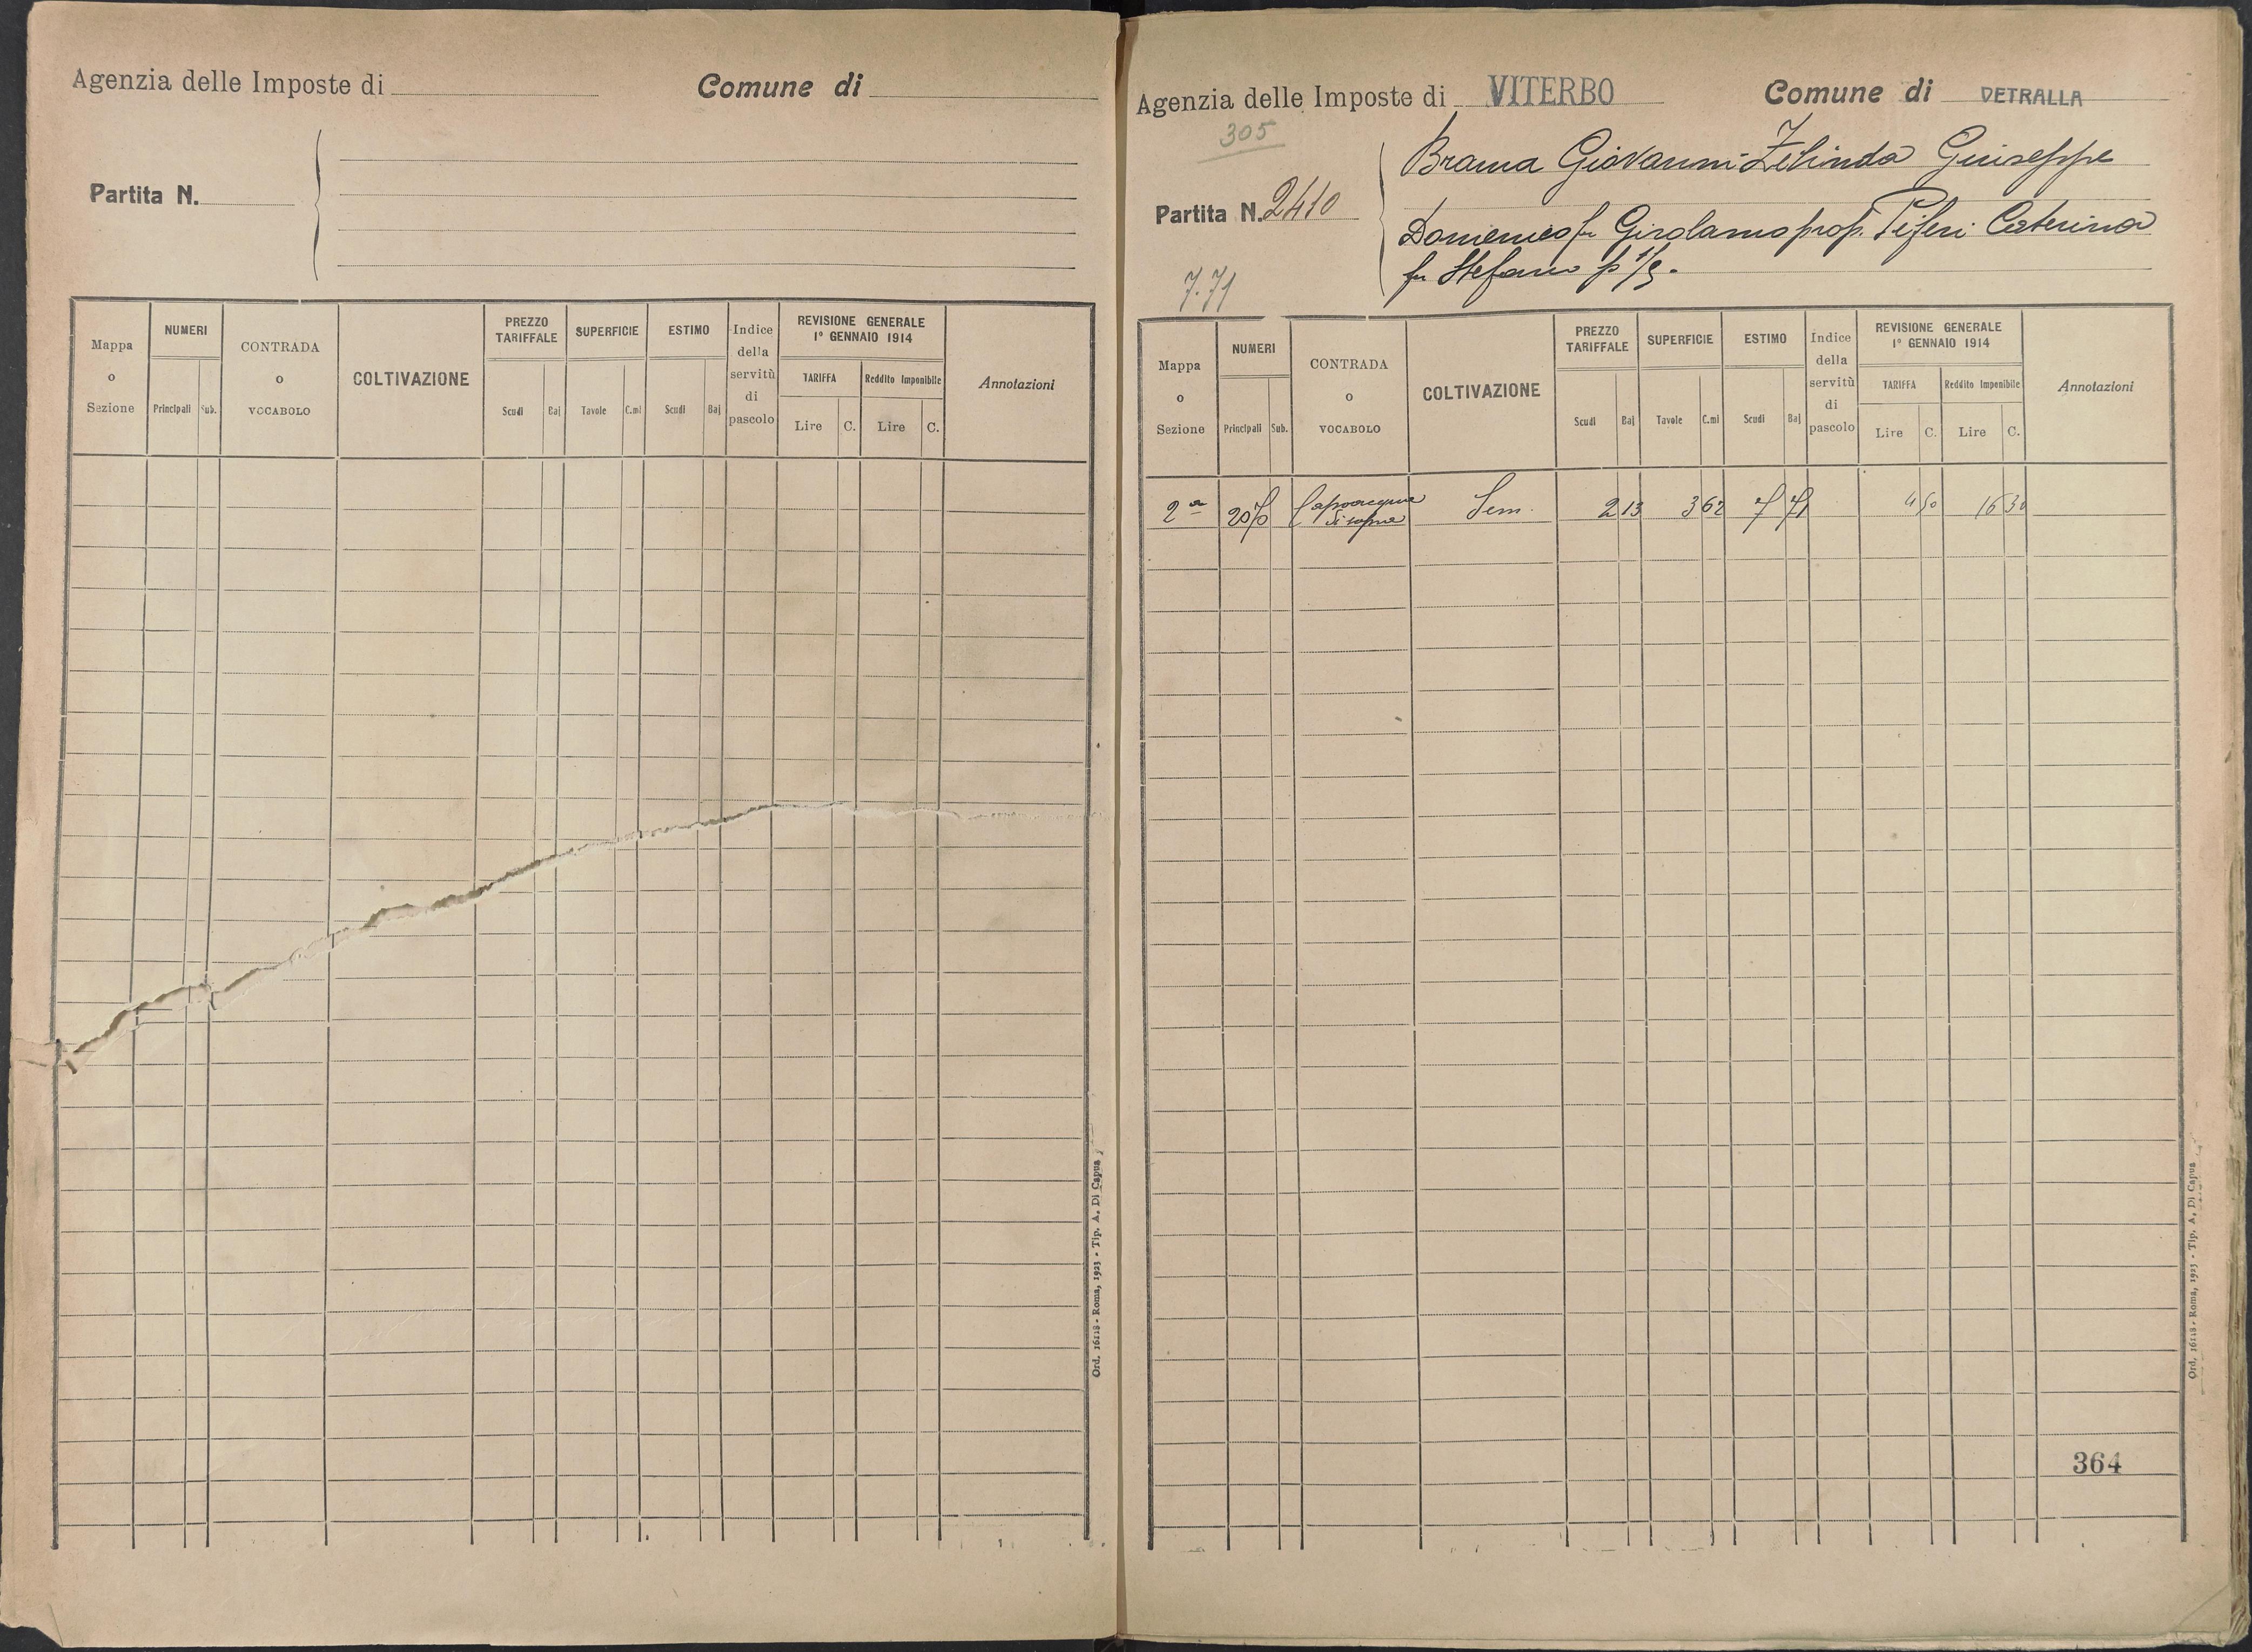 Agenzia delle Imposte di
Comune di
Partita N.
Mappa o Sezione
NUMERI
Principali Sub.
CONTRADA o VOCABOLO
COLTIVAZIONE
PREZZO TARIFFALE
Scudi Baj
SUPERFICIE
Tavole C.mi
ESTIMO
Scudi Baj
Indice della servitù di pascolo
REVISIONE GENERALE
1º GENNAIO 1914
TARIFFA Reddito Imponibile
Lire C. Lire C.
Annotazioni
Ord. 16118 - Roma, 1923 - Tip. A. Di Capua
Agenzia delle Imposte di VITERBO
Comune di VETRALLA
305
Partita N. 2410
Brama Giovanni Zelinda Giuseppe
Domenico fu Girolamo prop. Piferi Caterina
fu Stefano
7.71
Mappa o Sezione
NUMERI
Principali Sub.
CONTRADA o VOCABOLO
COLTIVAZIONE
PREZZO TARIFFALE
Scudi Baj
SUPERFICIE
Tavole C.mi
ESTIMO
Scudi Baj
Indice della servitù di pascolo
REVISIONE GENERALE
1º GENNAIO 1914
TARIFFA Reddito Imponibile
Lire C. Lire C.
Annotazioni
2ª Capoacqua di sopra Sem. 2 13 3 62 7 71 4 50 16 30
364
Ord. 16118 - Roma, 1923 - Tip. A. Di Capua